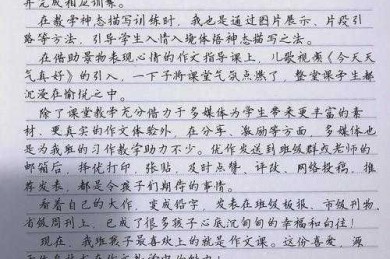 并完成相应训练。
在教学神态描写训练时，我也是通过图片展示、片段引
路等方法，引导学生入情入境体悟神态描写之法。
在借助景物表现心情的作文指导课上，儿歌视频《今天天
气真好》的引入，一下子将课堂气氛点燃了，整堂课学生都
沉浸在愉悦之中。
除了课堂教学充分借力于多媒体为学生带来更丰富的素
材、更真实的习作体验外，在分享、激励等方面，多媒体也
是为我班的习作教学助力不少。优作发送到班级群或老师的
邮箱后，择优打印、张贴，及时点赞、评改、网络投稿、推
荐发表，都是令孩子们期待的事情。
看着自己的大作，变成铅字，发表在班级板报、市级刊物、
省级周刊上，已成了很多孩子心底沉甸甸的幸福和向往！
现在，我班孩子最喜欢上的就是作文课。这份喜爱，源